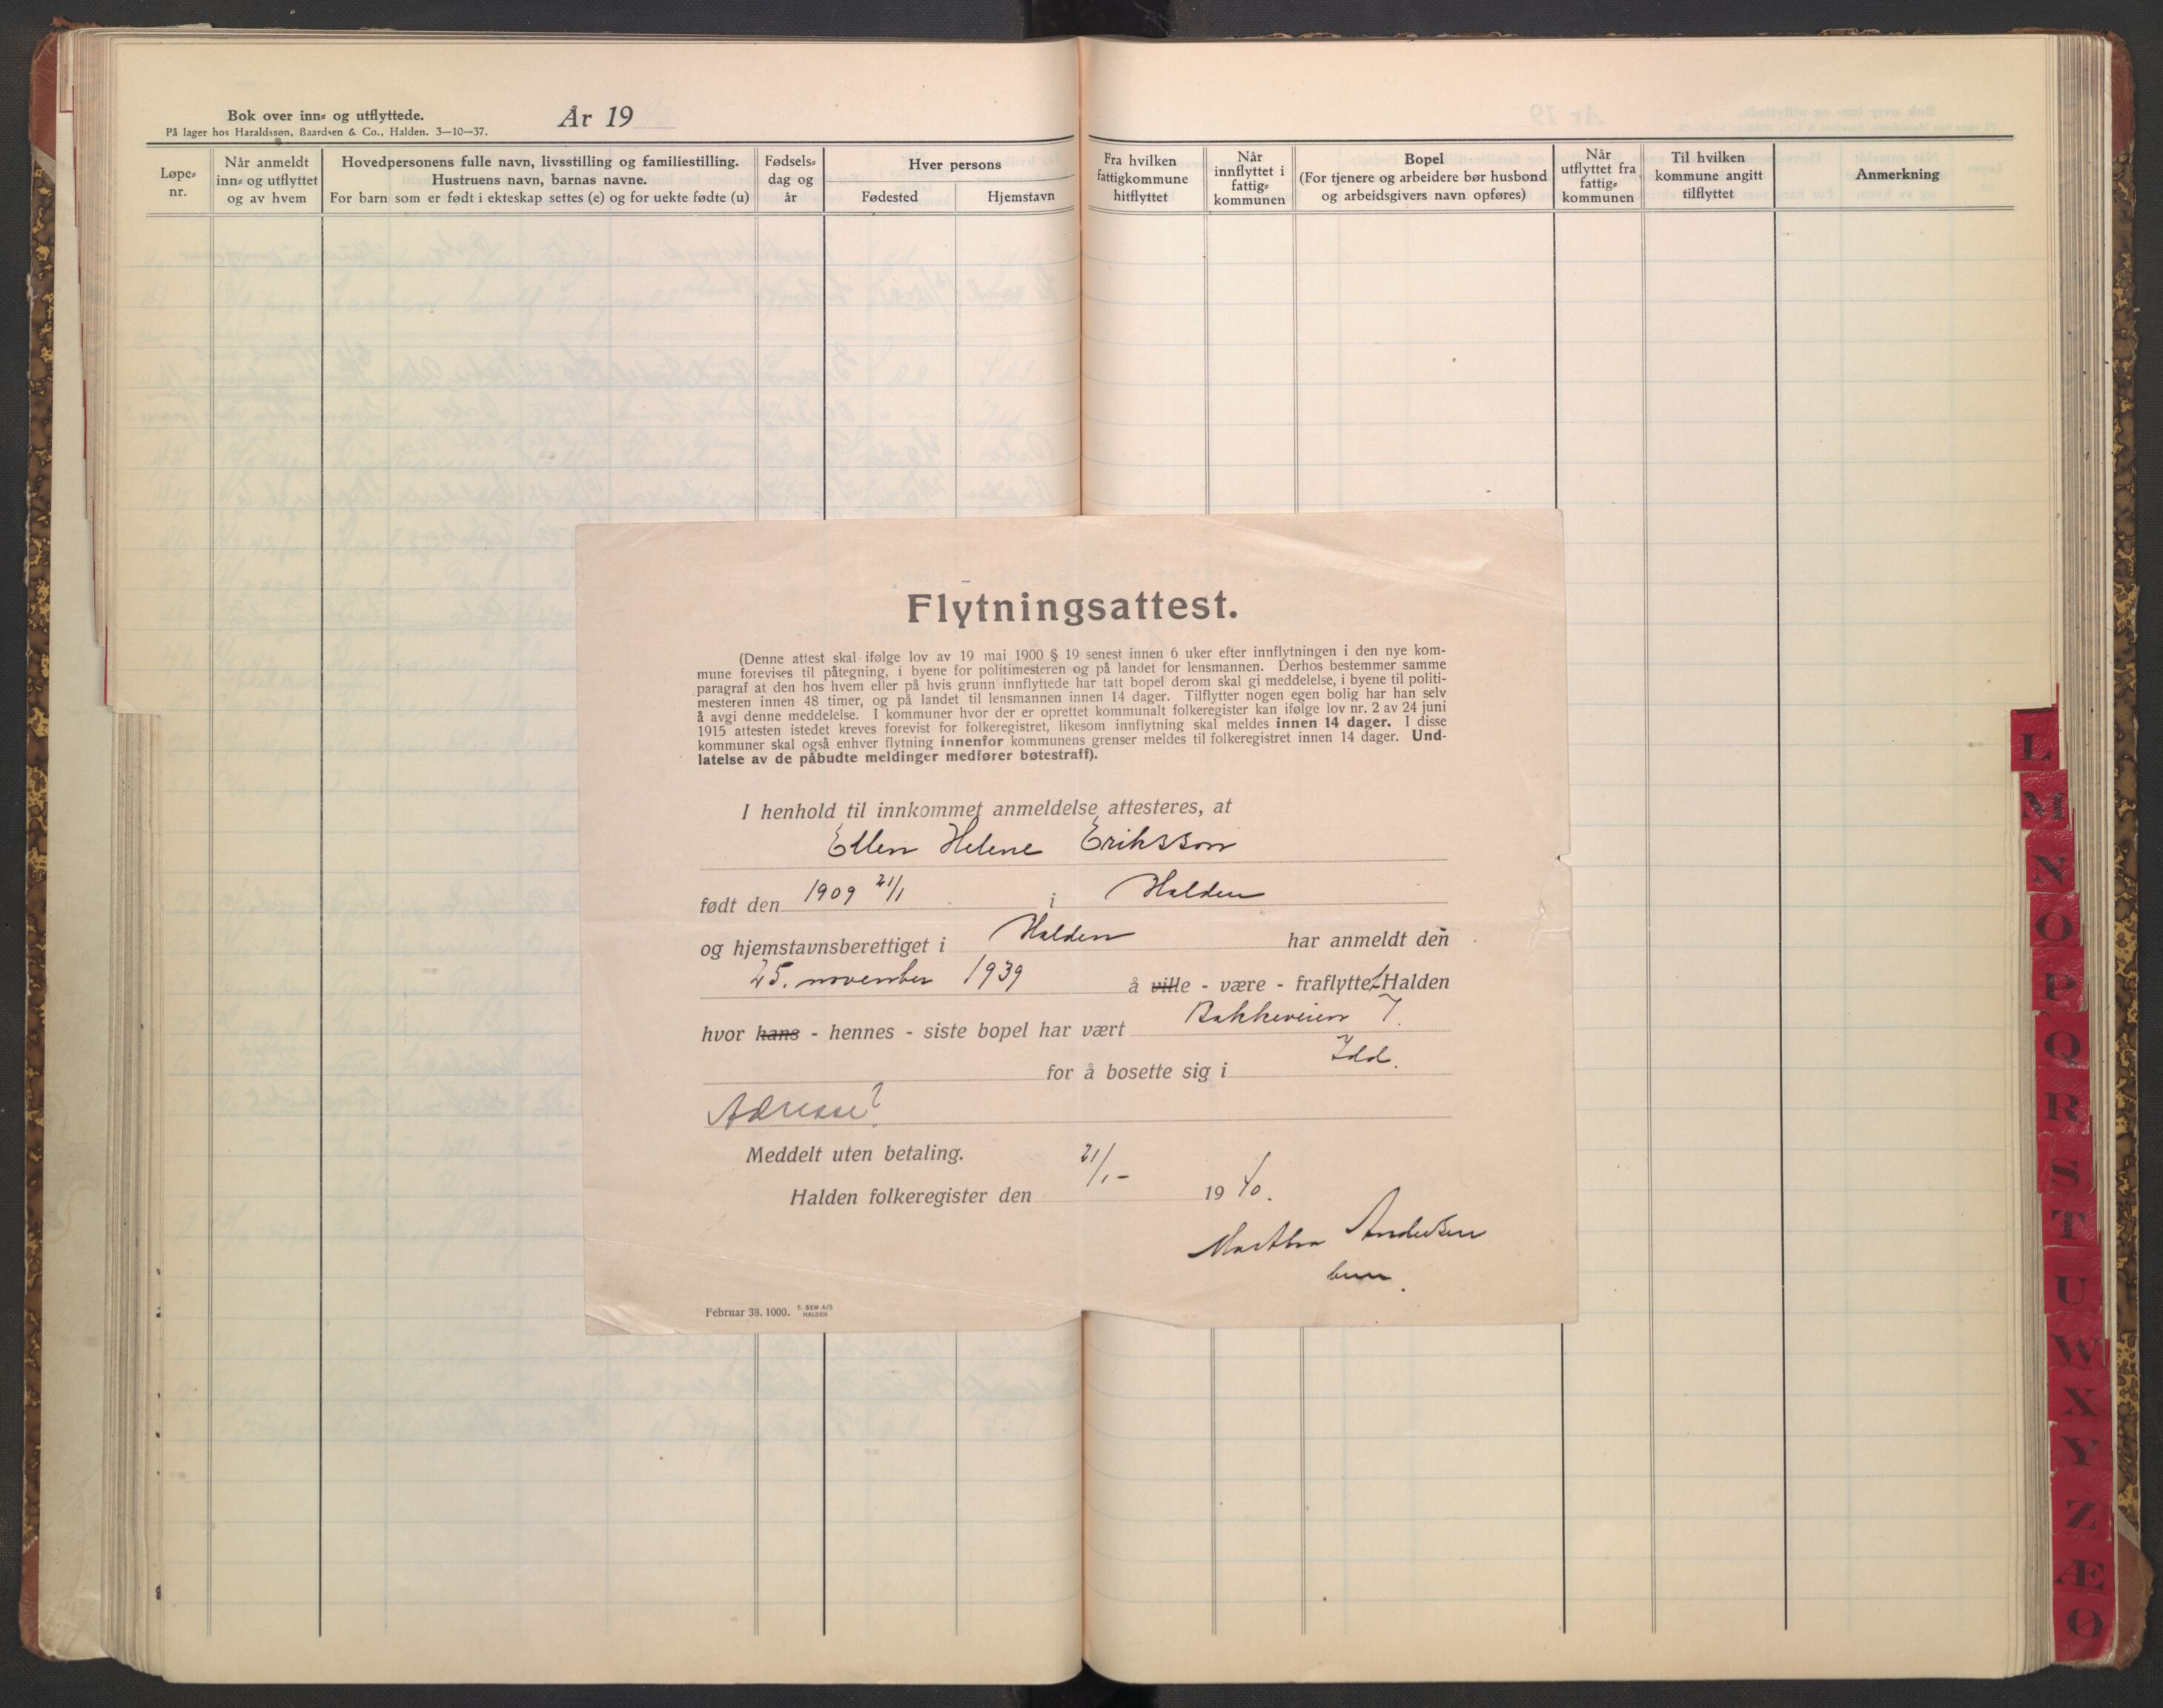 Bok over inn- og utflyttede.
På lager hos Haraldssøn, Baardsen & Co., Halden. 3—10—37.
År 19
Løpe-
nr.
Når anmeldt
inn- og utflyttet
og av hvem
Hovedpersonens fulle navn, livsstilling og familiestilling.
Hustruens navn, barnas navne.
For barn som er født i ekteskap settes (e) og for uekte fødte (u)
Fødsels-
dag og
år
Hver persons
Fødested
Hjemstavn
Fra hvilken
fattigkommune
hitflyttet
Når
innflyttet i
fattig-
kommunen
Bopel
(For tjenere og arbeidere bør husbond
og arbeidsgivers navn opføres)
Når
utflyttet fra
fattig-
kommunen
Til hvilken
kommune angitt
tilflyttet
Anmerkning
Flytningsattest.
(Denne attest skal ifølge lov av 19 mai 1900 § 19 senest innen 6 uker efter innflytningen i den nye kom-
mune forevises til påtegning, i byene for politimesteren og på landet for lensmannen. Derhos bestemmer samme
paragraf at den hos hvem eller på hvis grunn innflyttede har tatt bopel derom skal gi meddelelse, i byene til politi-
mesteren innen 48 timer, og på landet til lensmannen innen 14 dager. Tilflytter nogen egen bolig har han selv
å avgi denne meddelelse. I kommuner hvor der er oprettet kommunalt folkeregister kan ifølge lov nr. 2 av 24 juni
1915 attesten istedet kreves forevist for folkeregistret, likesom innflytning skal meldes innen 14 dager. I disse
kommuner skal også enhver flytning innenfor kommunens grenser meldes til folkeregistret innen 14 dager. Und-
latelse av de påbudte meldinger medfører bøtestraff).
I henhold til innkommet anmeldelse attesteres, at
Ellen Helene Eriksson
født den 1909 21/1 i Halden
og hjemstavnsberettiget i Halden har anmeldt den
25. november 1939 å ville - være - fraflyttet Halden
hvor hans - hennes - siste bopel har vært Bakkeveien 7.
for å bosette sig i Idd.
Adresse?
Meddelt uten betaling.
Halden folkeregister den 21/1- 1940.
Martha Andersen
Februar 38. 1000. E. SEM A/S
HALDEN
L
M
N
O
P
Q
R
S
T
U
W
X
Y
Z
Æ
Ø